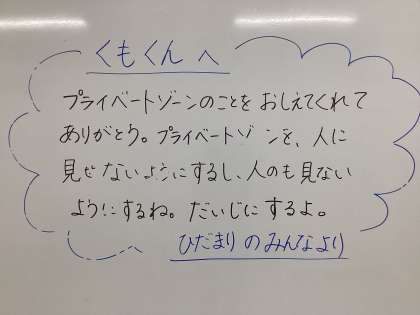 くもくんへ
プライベートゾーンのことを おしえてくれて
ありがとう。プライベートゾーンを、人に
見せないようにするし、人のも見ない
ようにするね。だいじにするよ。
ひだまりのみんなより